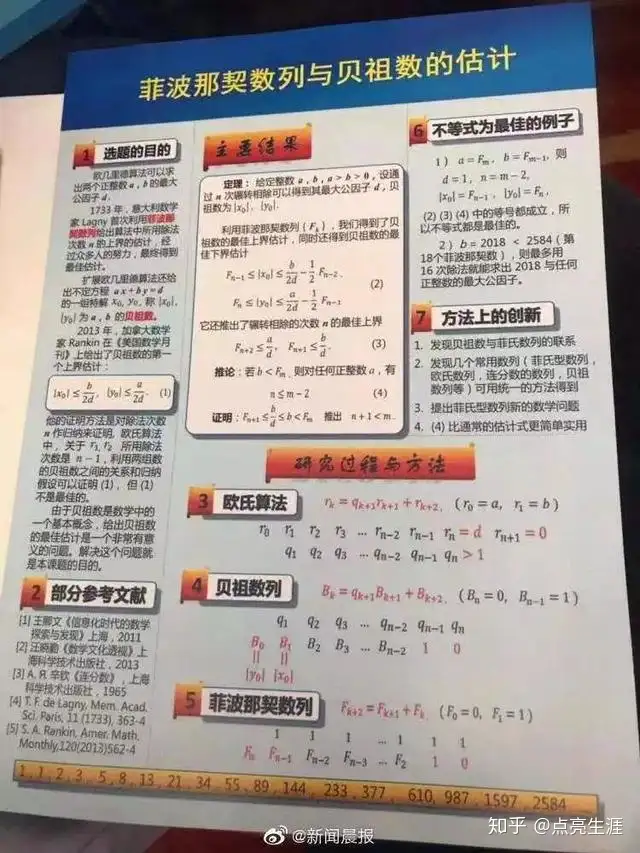 菲波那契数列与贝祖数的估计
1 选题的目的
欧几里德算法可以求
出两个正整数 a, b 的最大
公因子 d.
1733 年，意大利数学
家 Lagny 首次利用菲波那
契数列给出算法中所用除法
次数 n 的上界的估计，经
过众多人的努力，最终得到
最佳估计。
扩展欧几里德算法还给
出不定方程 ax+by=d
的一组特解 x₀, y₀, 称 |x₀|,
|y₀| 为 a, b 的贝祖数。
2013 年，加拿大数学
家 Rankin 在《美国数学月
刊》上给出了贝祖数的第一
个上界估计：
|x₀| ≤ b/2d, |y₀| ≤ a/2d. (1)
他的证明方法是对除法次数
n 作归纳来证明，欧氏算法
中，关于 r₁, r₂ 所用除法
次数是 n − 1，利用两组数
的贝祖数之间的关系和归纳
假设可以证明 (1)，但 (1)
不是最佳的。
由于贝祖数是数学中的
一个基本概念，给出贝祖数
的最佳估计是一个非常有意
义的问题。解决这个问题就
是本课题的目的。
2 部分参考文献
[1] 王卿文《信息化时代的数学
探索与发现》上海，2011
[2] 汪晓勤《数学文化透视》上
海科学技术出版社，2013
[3] А. Я. 辛钦《连分数》，上海
科学技术出版社，1965
[4] T. F. de Lagny, Mem. Acad.
Sci. Paris, 11 (1733), 363-4
[5] S. A. Rankin, Amer. Math.
Monthly,120(2013)562-4
主要结果
定理：给定整数 a, b, a > b > 0, 设通
过 n 次辗转相除可以得到其最大公因子 d, 贝
祖数为 |x₀|, |y₀|.
利用菲波那契数列 {Fₖ}，我们得到了贝
祖数的最佳上界估计，同时还得到贝祖数的最
佳下界估计
Fₙ₋₁ ≤ |x₀| ≤ b/2d − 1/2 Fₙ₋₂,
(2)
Fₙ ≤ |y₀| ≤ a/2d − 1/2 Fₙ₋₁
它还推出了辗转相除的次数 n 的最佳上界
Fₙ₊₂ ≤ a/d, Fₙ₊₁ ≤ b/d. (3)
推论：若 b < Fₘ, 则对任何正整数 a, 有
n ≤ m − 2 (4)
证明：Fₙ₊₁ ≤ b/d ≤ b < Fₘ 推出 n + 1 < m.
6 不等式为最佳的例子
1） a = Fₘ, b = Fₘ₋₁, 则
d = 1, n = m − 2,
|x₀| = Fₙ₋₁, |y₀| = Fₙ,
(2) (3) (4) 中的等号都成立，所
以不等式都是最佳的。
2） b = 2018 < 2584（第
18个菲波那契数），则最多用
16 次除法就能求出 2018 与任何
正整数的最大公因子。
7 方法上的创新
1. 发现贝祖数与菲氏数列的联系
2. 发现几个常用数列（菲氏型数列，
欧氏数列，连分数的数列，贝祖
数列等）可用统一的方法得到
3. 提出菲氏型数列新的数学问题
4. (4) 比通常的估计式更简单实用
研究过程与方法
3 欧氏算法 rₖ = qₖ₊₁rₖ₊₁ + rₖ₊₂, （r₀ = a, r₁ = b）
r₀ r₁ r₂ r₃ … rₙ₋₂ rₙ₋₁ rₙ = d rₙ₊₁ = 0
q₁ q₂ q₃ … qₙ₋₂ qₙ₋₁ qₙ > 1
4 贝祖数列 Bₖ = qₖ₊₁Bₖ₊₁ + Bₖ₊₂, （Bₙ = 0, Bₙ₋₁ = 1）
q₁ q₂ q₃ … qₙ₋₂ qₙ₋₁ qₙ
B₀ B₁ B₂ B₃ … Bₙ₋₂ 1 0
|| ||
|y₀| |x₀|
5 菲波那契数列 Fₖ₊₂ = Fₖ₊₁ + Fₖ, （F₀ = 0, F₁ = 1）
1 1 1 … 1 1 1
Fₙ Fₙ₋₁ Fₙ₋₂ Fₙ₋₃ … F₂ 1 0
1, 1, 2, 3, 5, 8, 13, 21, 34, 55, 89, 144, 233, 377, 610, 987, 1597, 2584
@新闻晨报
知乎 @点亮生涯